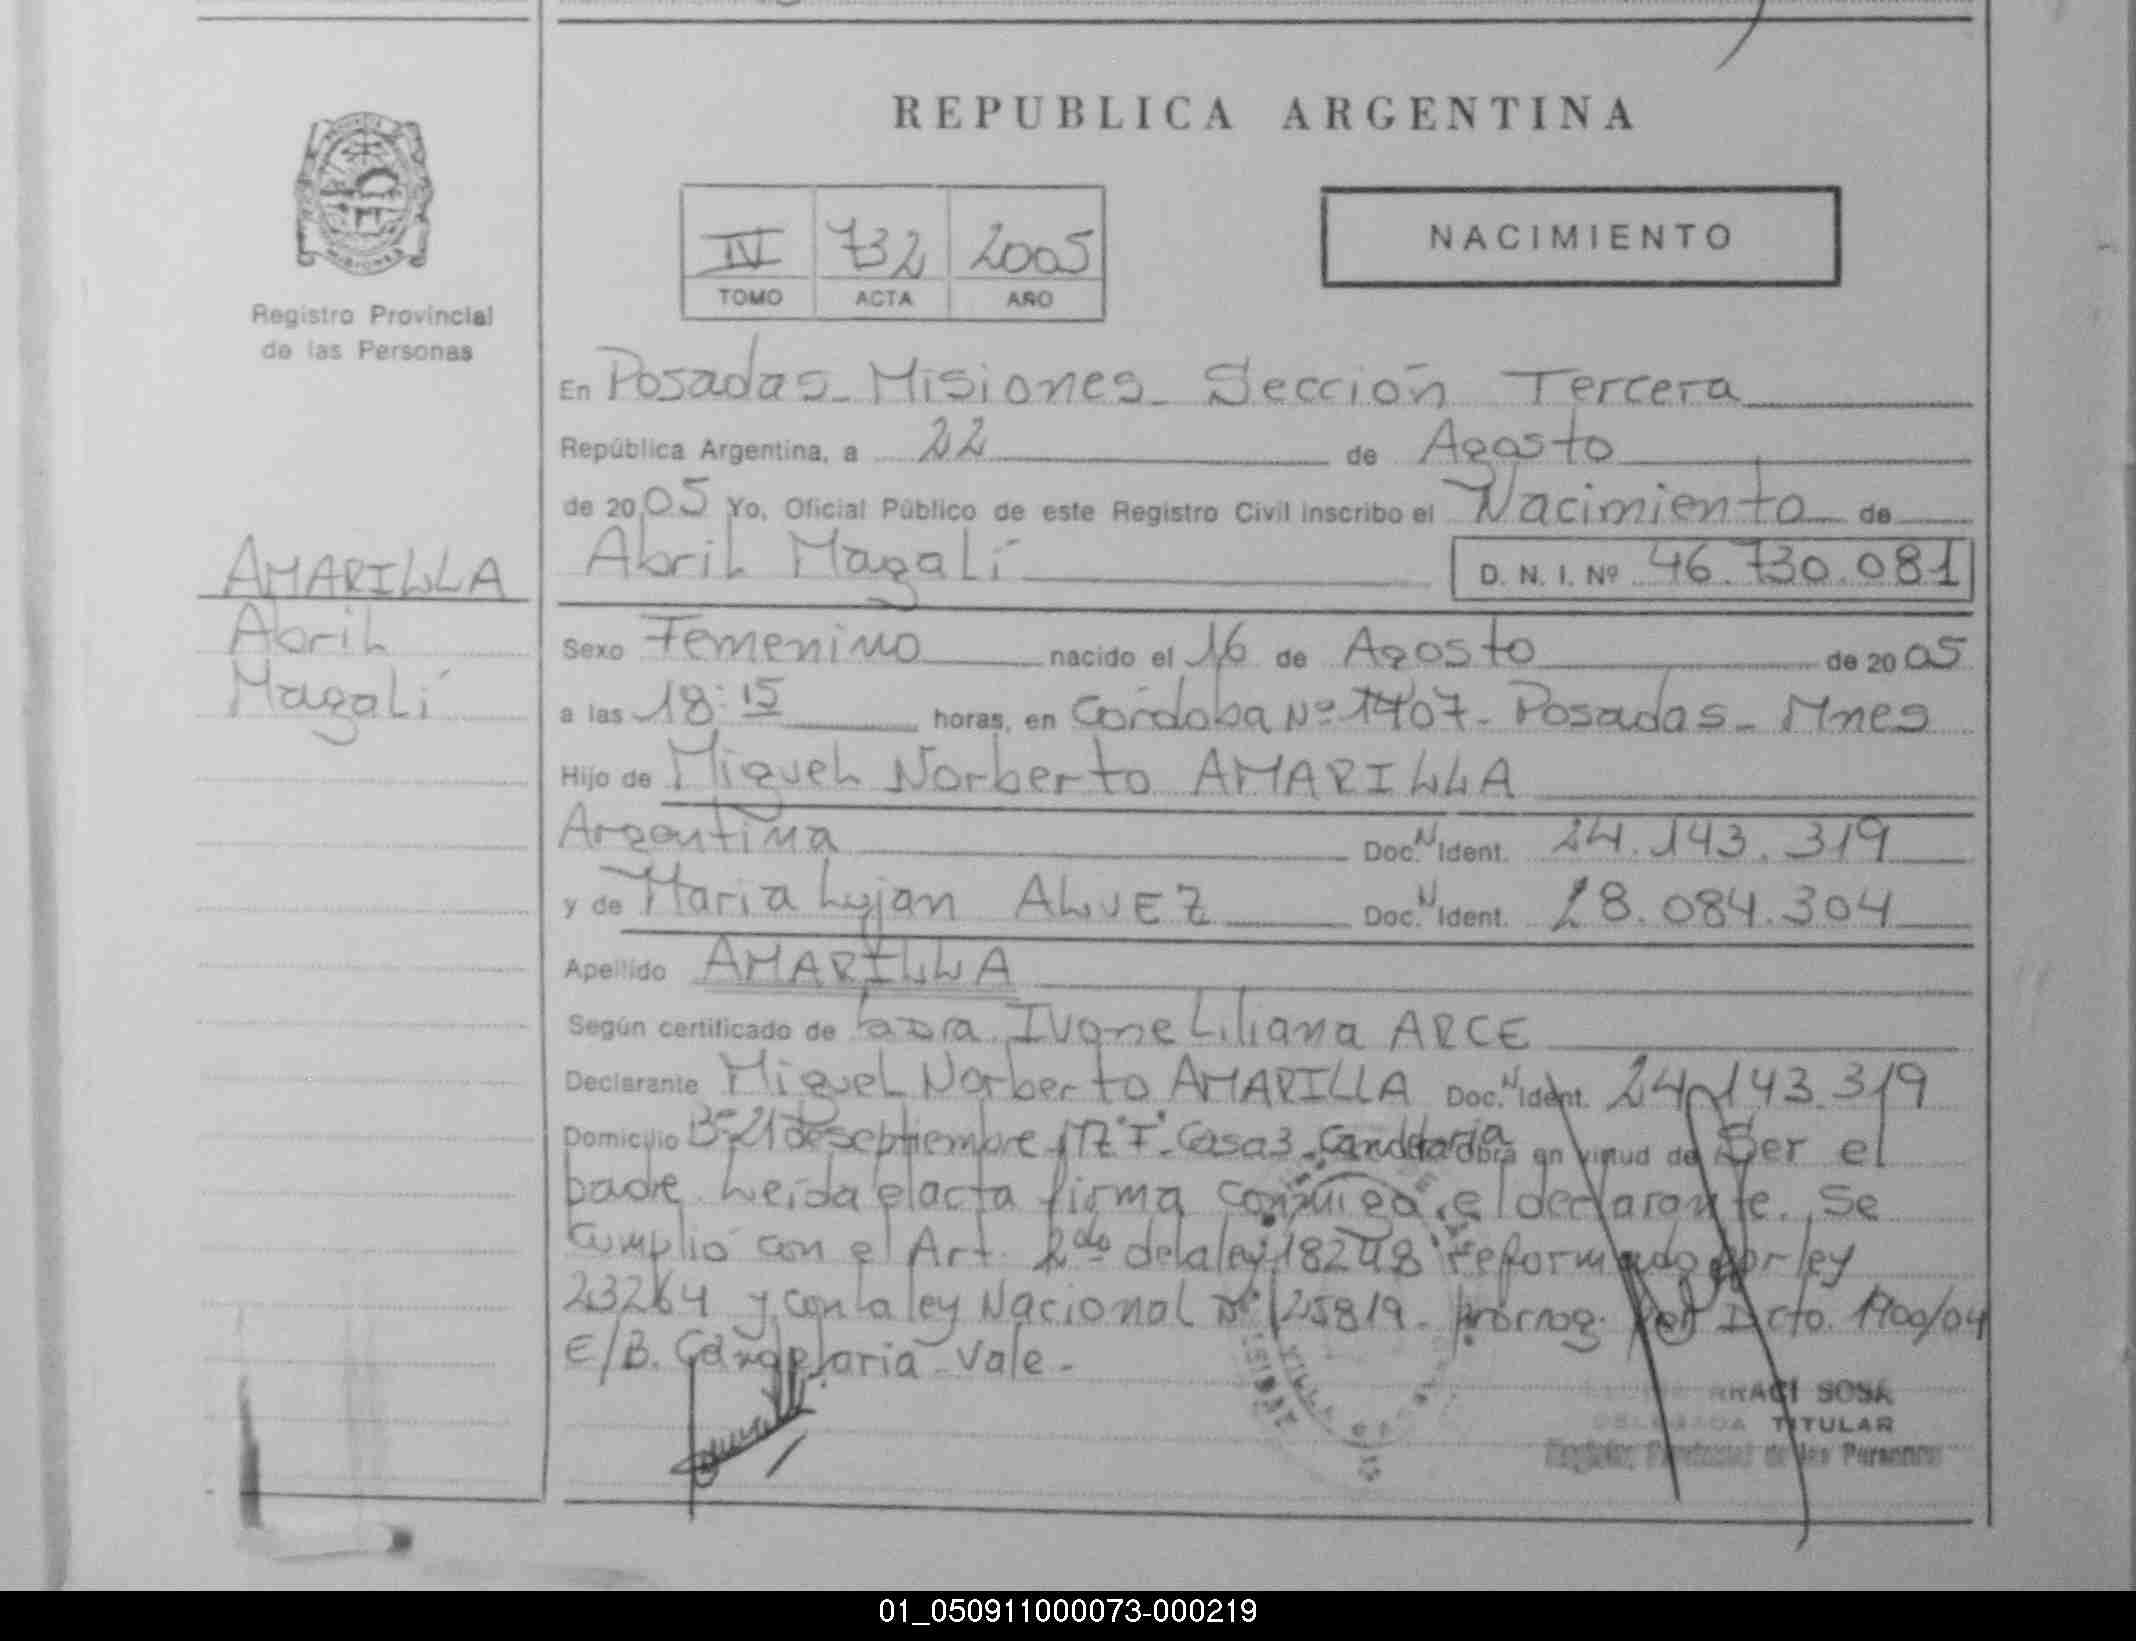 REPUBLICA ARGENTINA
MISIONES
Registro Provincial
de las Personas
IV 732 2005
TOMO ACTA AÑO
NACIMIENTO
En Posadas - Misiones - Sección Tercera
República Argentina, a 22 de Agosto
de 2005 Yo, Oficial Público de este Registro Civil inscribo el Nacimiento de
Abril Magalí D. N. I. Nº 46.730.081
AMARILLA
Abril
Magalí
Sexo Femenino nacido el 16 de Agosto de 2005
a las 18:15 horas, en Córdoba Nº 1407 - Posadas - Mnes
Hijo de Miguel Norberto AMARILLA
Argentina Doc. N Ident. 24.143.319
y de Maria Lujan ALVEZ Doc. N Ident. 28.084.304
Apellido AMARILLA
Según certificado de Ivone Liliana ARCE
Declarante Miguel Norberto AMARILLA Doc. N Ident. 24.143.319
Domicilio Bº 21 de septiembre Mz "F" - Casa 3 - Candelaria Obra en virtud de Ser el
padre. Leida el acta firma conmigo el declarante. Se
cumplió con el Art. 2do de la ley 18248 reformado por ley
23264 y con la ley Nacional Nº 25819 - prorrog. por Dcto. 1900/04
E/B. Candelaria - Vale -
ARACI SOSA
DELEGADA TITULAR
Registro Provincial de las Personas
01_050911000073-000219